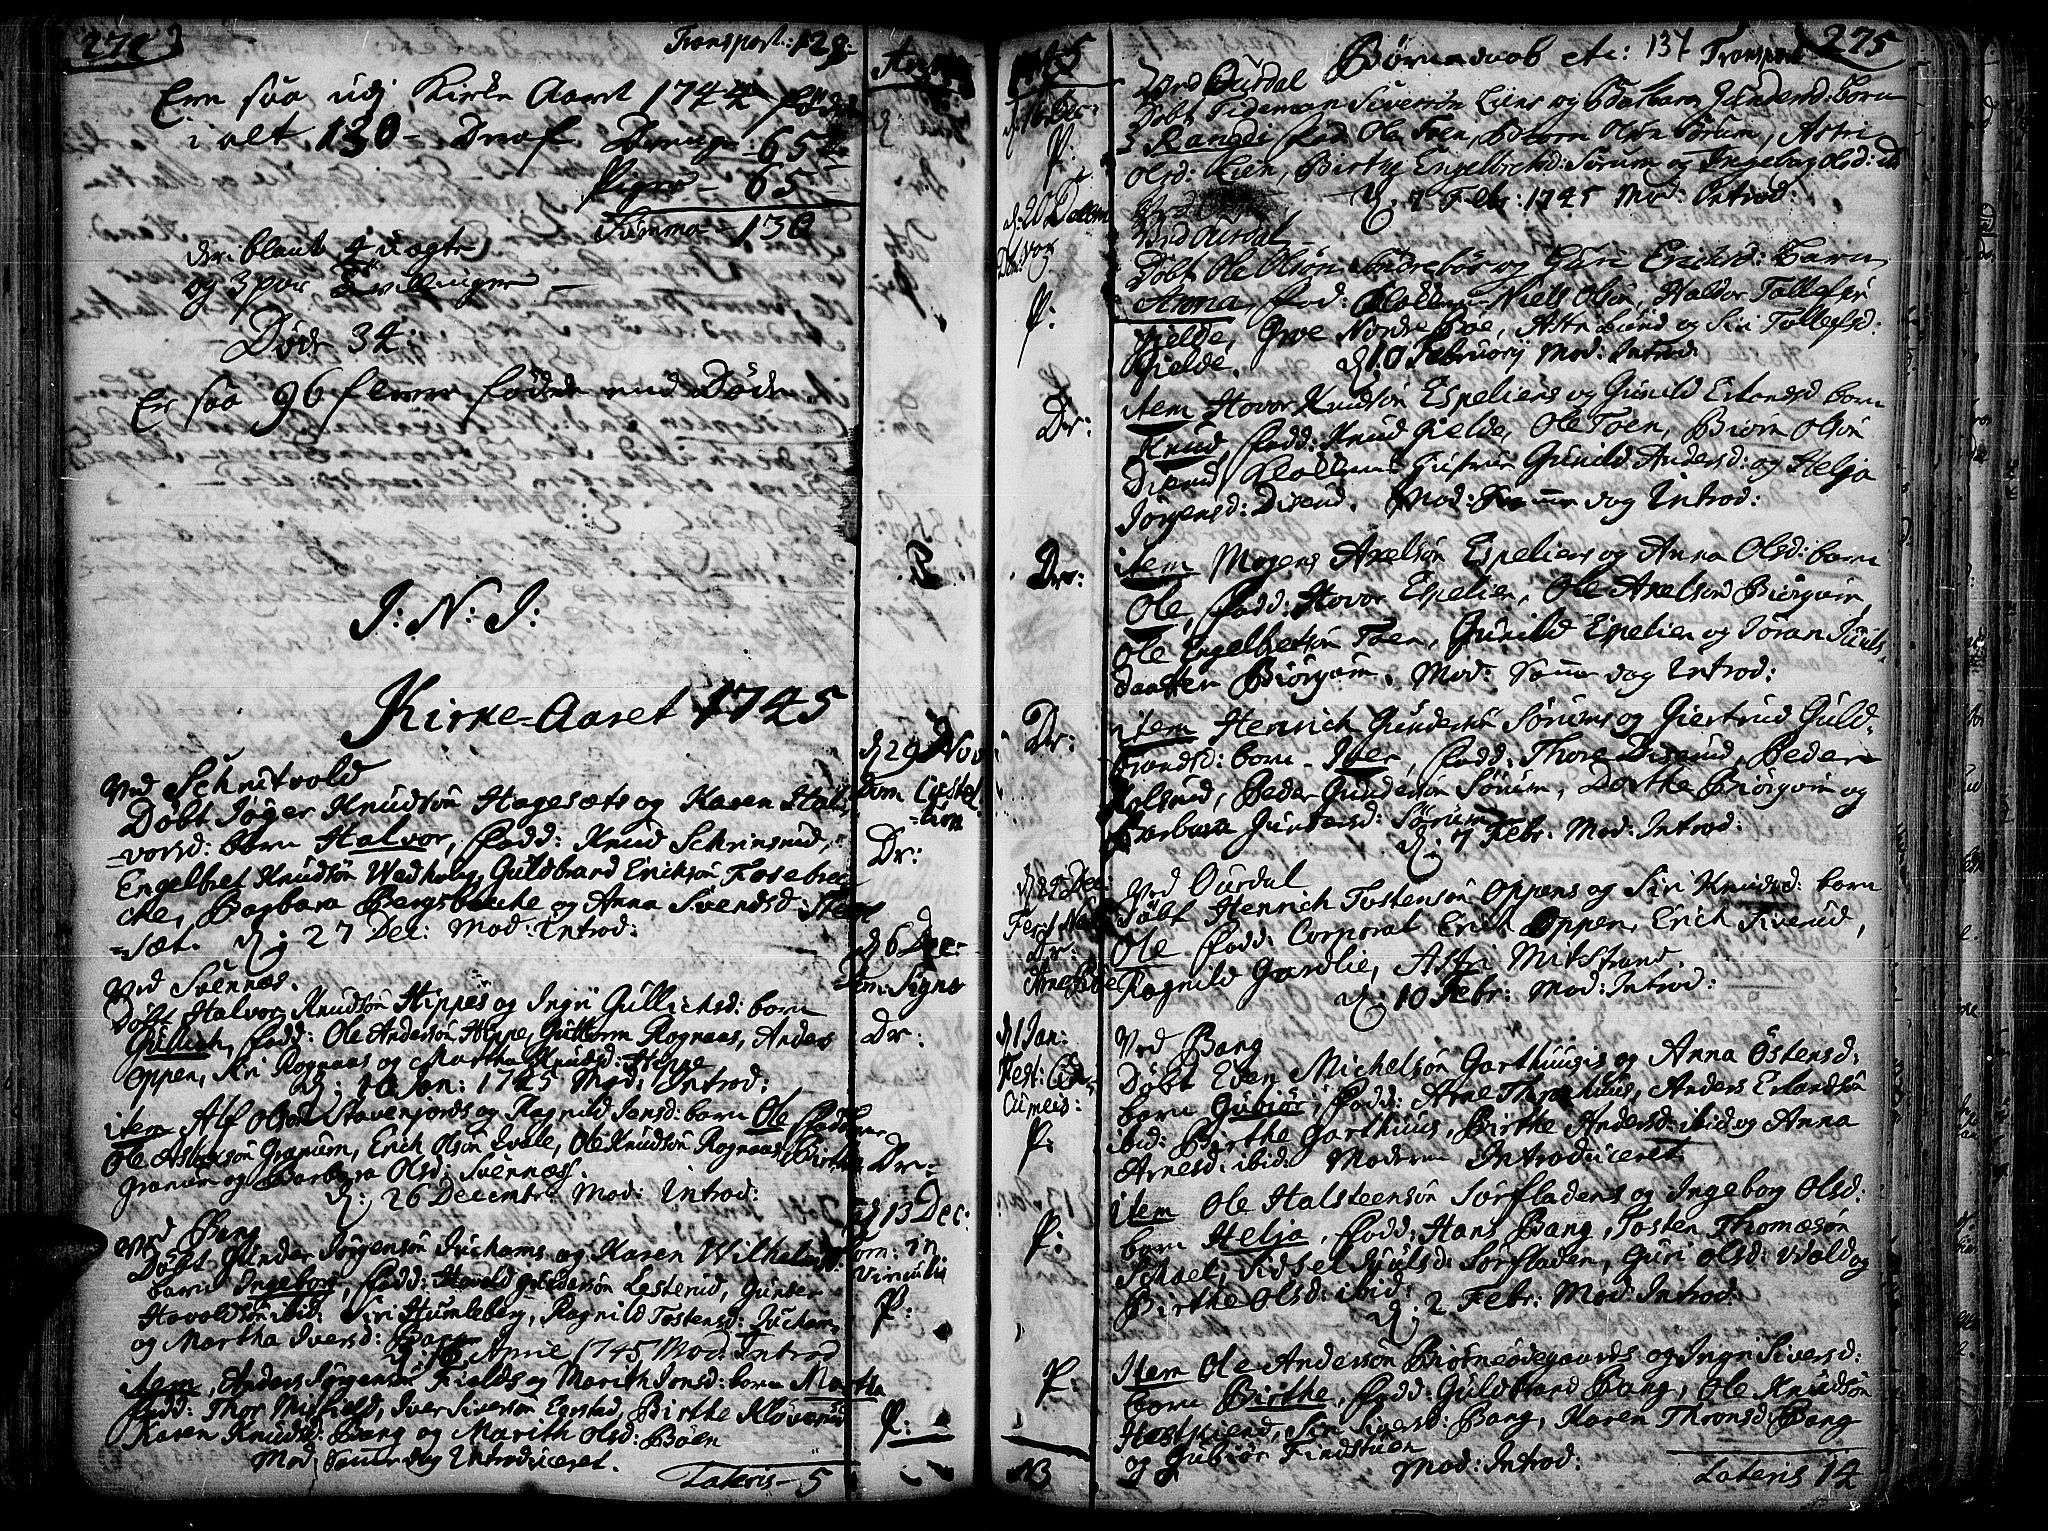 274
Transport: 129.
Ere saa udj Kirke Aaret 1744 fødde
i alt 130 – Deraf Drenge – 65
Piger – 65
Summa – 130
der iblant 4 uægte
og 3 par Tvillinger
Døde 34:
Er saa 96 fleere fødde end Døde.
I: N: I:
Kirke-Aaret 1745
Anno
d. 29 Nov
Dr:
d. 6 Dec:
Dr:
Dr:
d. 13 Dec:
P:
P:
Ved Schrutvold
Døbt Jøger Knudsøn Hagesæts og Karen Hal-
vorsd: barn Halvor, Fadd: Knud Schrinsrud,
Engelbret Knudsøn Wedhoug, Guldbrand Erichsøn Fosebrec
che, Barbara Bergsbache og Anna Svendsd: Steen
=sæt. d: 27 Dec: Mod: Introd:
Ved Svennæs.
Døbt Halvor Knudsøn Hippes og Ingri Gullichsd: barn
Gullich, Fadd: Ole Andersøn Hippe, Guttorm Rognaas, Anders
Oppen, Siri Rognaas og Martha Knudsd: Hippe
d: 10 Jan: 1745 Mod: Introd:
item Alf Olsøn Stavenjords og Ragnild Jensd: barn Ole Faddere
Ole Asbersøn Granum, Erich Olsøn Ivale, Ole Knudsøn Rognaas, Birthe
Granum og Barbara Olsd: Svennæs.
d: 26 Decembr: Mod: Introd:
Ved Bang
Døbt Gunder Jørgensøn Juchams og Karen Wilhelmsd:
barn Ingeborg, Fadd: Havold Gundersøn Lesterud, Gunder
Havoldsøn ibid: Siri Humleberg, Ragnild Tostensd: Jucham,
og Martha Iversd: Bang
April 1745 Mod: Introd
item, Anders Jørgensøn Fields og Marith Jonsd: barn Martha
Fadd: Thor Mitfield, Iver Siversøn Egstad, Birthe Kløverud
Karen Knudsd: Bang og Marith Olsd: Bøen
Mod: Samme dag Introduceret.
Lateris – 5
1745
Børnedaab etc: 134 Transport
275
d. 16 Dec:
P:
d. 20 Decem
P:
Dr:
Dr:
Dr:
Dr:
d. 1 Jan:
Fest: Cir
Cumcis:
P:
P:
P:
Ved Ourdal
Døbt Tideman Siversøn Liens og Barbara Gundersd: barn
Rangdi, Fad: Ole Toen, Biørn Olsøn Sørum, Astri
Olsd: Lien, Birthe Engelbretsd: Sørum og Ingeborg Olsd:
d: 7 Febr: 1745 Mod: Introd:
Ved Ourdal
Døbt Ole Olsøn Søndrebøe og Guri Erichsd: barn
Anna, Fad: Klokker Niels Olsøn, Haldor Tollefsøn
Gielde, Groe Nordre Bøe, Astri Lund og Siri Tollefsd:
Gielde. d: 10 Februarij Mod: Introd:
item Hovor Knudsøn Espeliens og Gunild Erlandsd: barn
Knud, Fadd: Knud Gielde, Ole Toen, Biørn Olsøn
Diserud, Klokkerens Hustrue Gunild Andersd: og Helja
Jørgensd: Diserud. Mod: Samme dag Introd:
item Mogens Axelsøn Espeliens og Anna Olsd: barn
Ole, Fadd: Hovor Espelien, Ole Axelsøn Biørgvim,
Ole Engelbretsøn Toen, Gunild Espelien og Jøran Juuls-
daatter Biørgvim. Mod: Samme dag Introd:
item Henrich Gundersøn Sørums og Giertrud Guld-
brandsd: barn – Iver, Fadd: Thore Diserud, Peder
Kolsrud, Peder Gundersøn Sørum, Dorthe Biørgvim og
Barbara Gundersd: Sørum
d: 7 Febr: Mod: Introd:
Ved Ourdal
Døbt Henrich Tostensøn Oppens og Siri Knudsd: barn
Ole Fadd: Corporal Erich Oppen, Erich Siverud,
Ragnild Gardlie, Astri Mitstrand.
d: 10 Febr: Mod: Introd:
Ved Bang
Døbt Even Michelsøn Garthuugis og Anna Østensd:
barn Gubiør, Fadd: Arne Thronhuus, Anders Erlandsøn
ibid: Birthe Garthuus, Birthe Andersd: ibid og Anna
Arnesd: ibid: Moderen Introduceret.
item Ole Halsteensøn Sørfladens og Ingeborg Olsd:
barn Helja, Fadd: Hans Bang, Tosten Thomæsøn
Schael, Sidsel Juulsd: Sørfladen, Guri Olsd: Wold og
Birthe Olsd: ibid:
d: 2 Febr: Mod: Introd:
Item Ole Andersøn Biørneødegaards og Ingri Siversd:
barn Birthe, Fadd: Guldbrand Bang, Ole Knudsøn
Hestkiend, Siri Siversd: Bang, Karen Thronsd: Bang
og Gubiør Findstuen
Mod: Introd:
Lateris 14